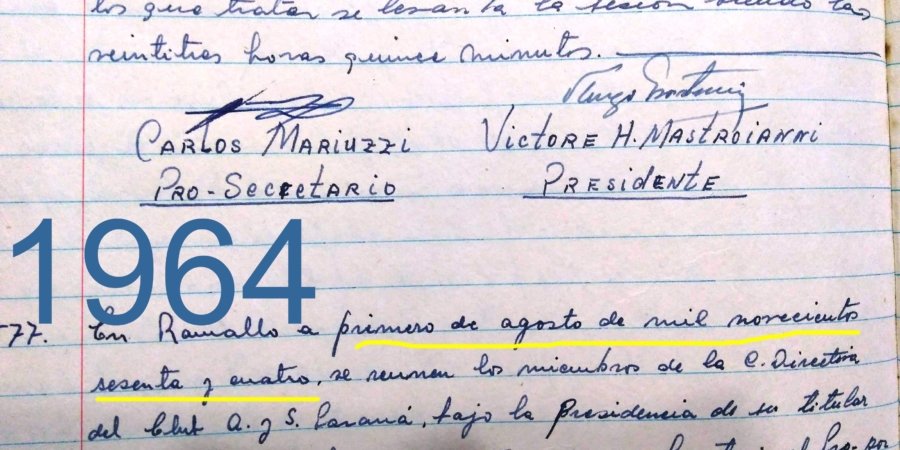 los que tratar se levanta la sesión siendo las
veintitres horas quince minutos.
CARLOS MARIUZZI VICTORE H. MASTROIANNI
PRO-SECRETARIO PRESIDENTE
1964
77. En Ramallo a primero de agosto de mil novecientos
sesenta y cuatro, se reunen los miembros de la C. Directiva
del Club A. y S. Paraná, bajo la presidencia de su titular